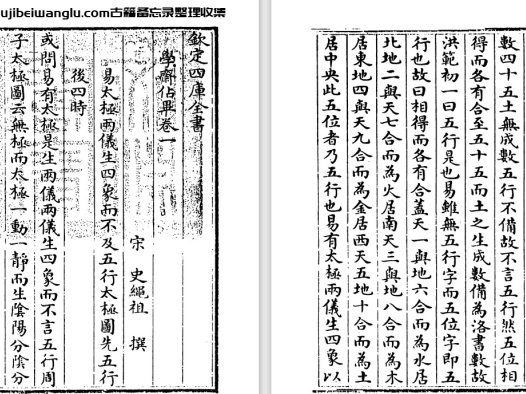 ujibeiwanglu.com古籍备忘录整理收集
欽定四庫全書
學齋佔畢卷一
宋 史繩祖 撰
易太極兩儀生四象而不及五行太極圖先五行
後四時
或問易有太極是生兩儀兩儀生四象而不言五行周
子太極圖云無極而太極一動一靜而生陰陽分陰分
數四十五土無成數五行不備故不言五行然五位相
得而各有合至五十五而土之生成數備為洛書數故
洪範初一曰五行是也易雖無五行字而五位字即五
行也故曰相得而各有合蓋天一與地六合而為水居
北地二與天七合而為火居南天三與地八合而為木
居東地四與天九合而為金居西天五地十合而為土
居中央此五位者乃五行也易有太極兩儀生四象以